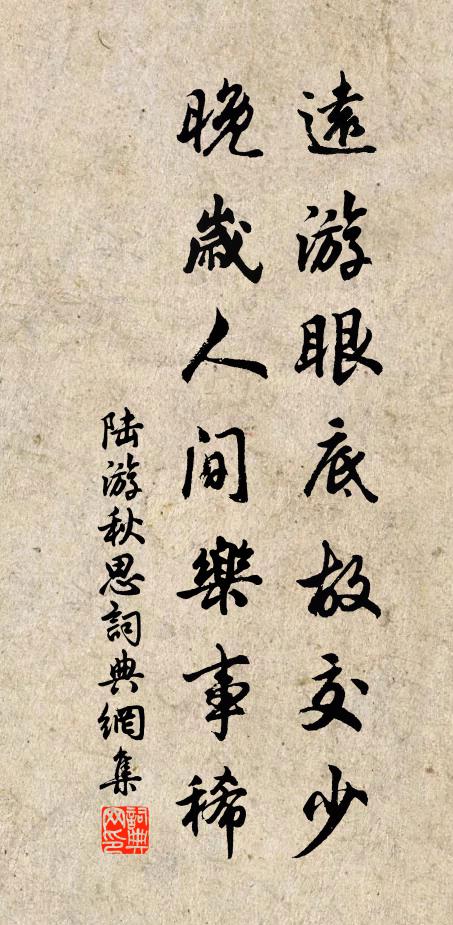 遠游眼底故交少
晚歲人間樂事稀
陸游秋思詞典網集
詞典網印